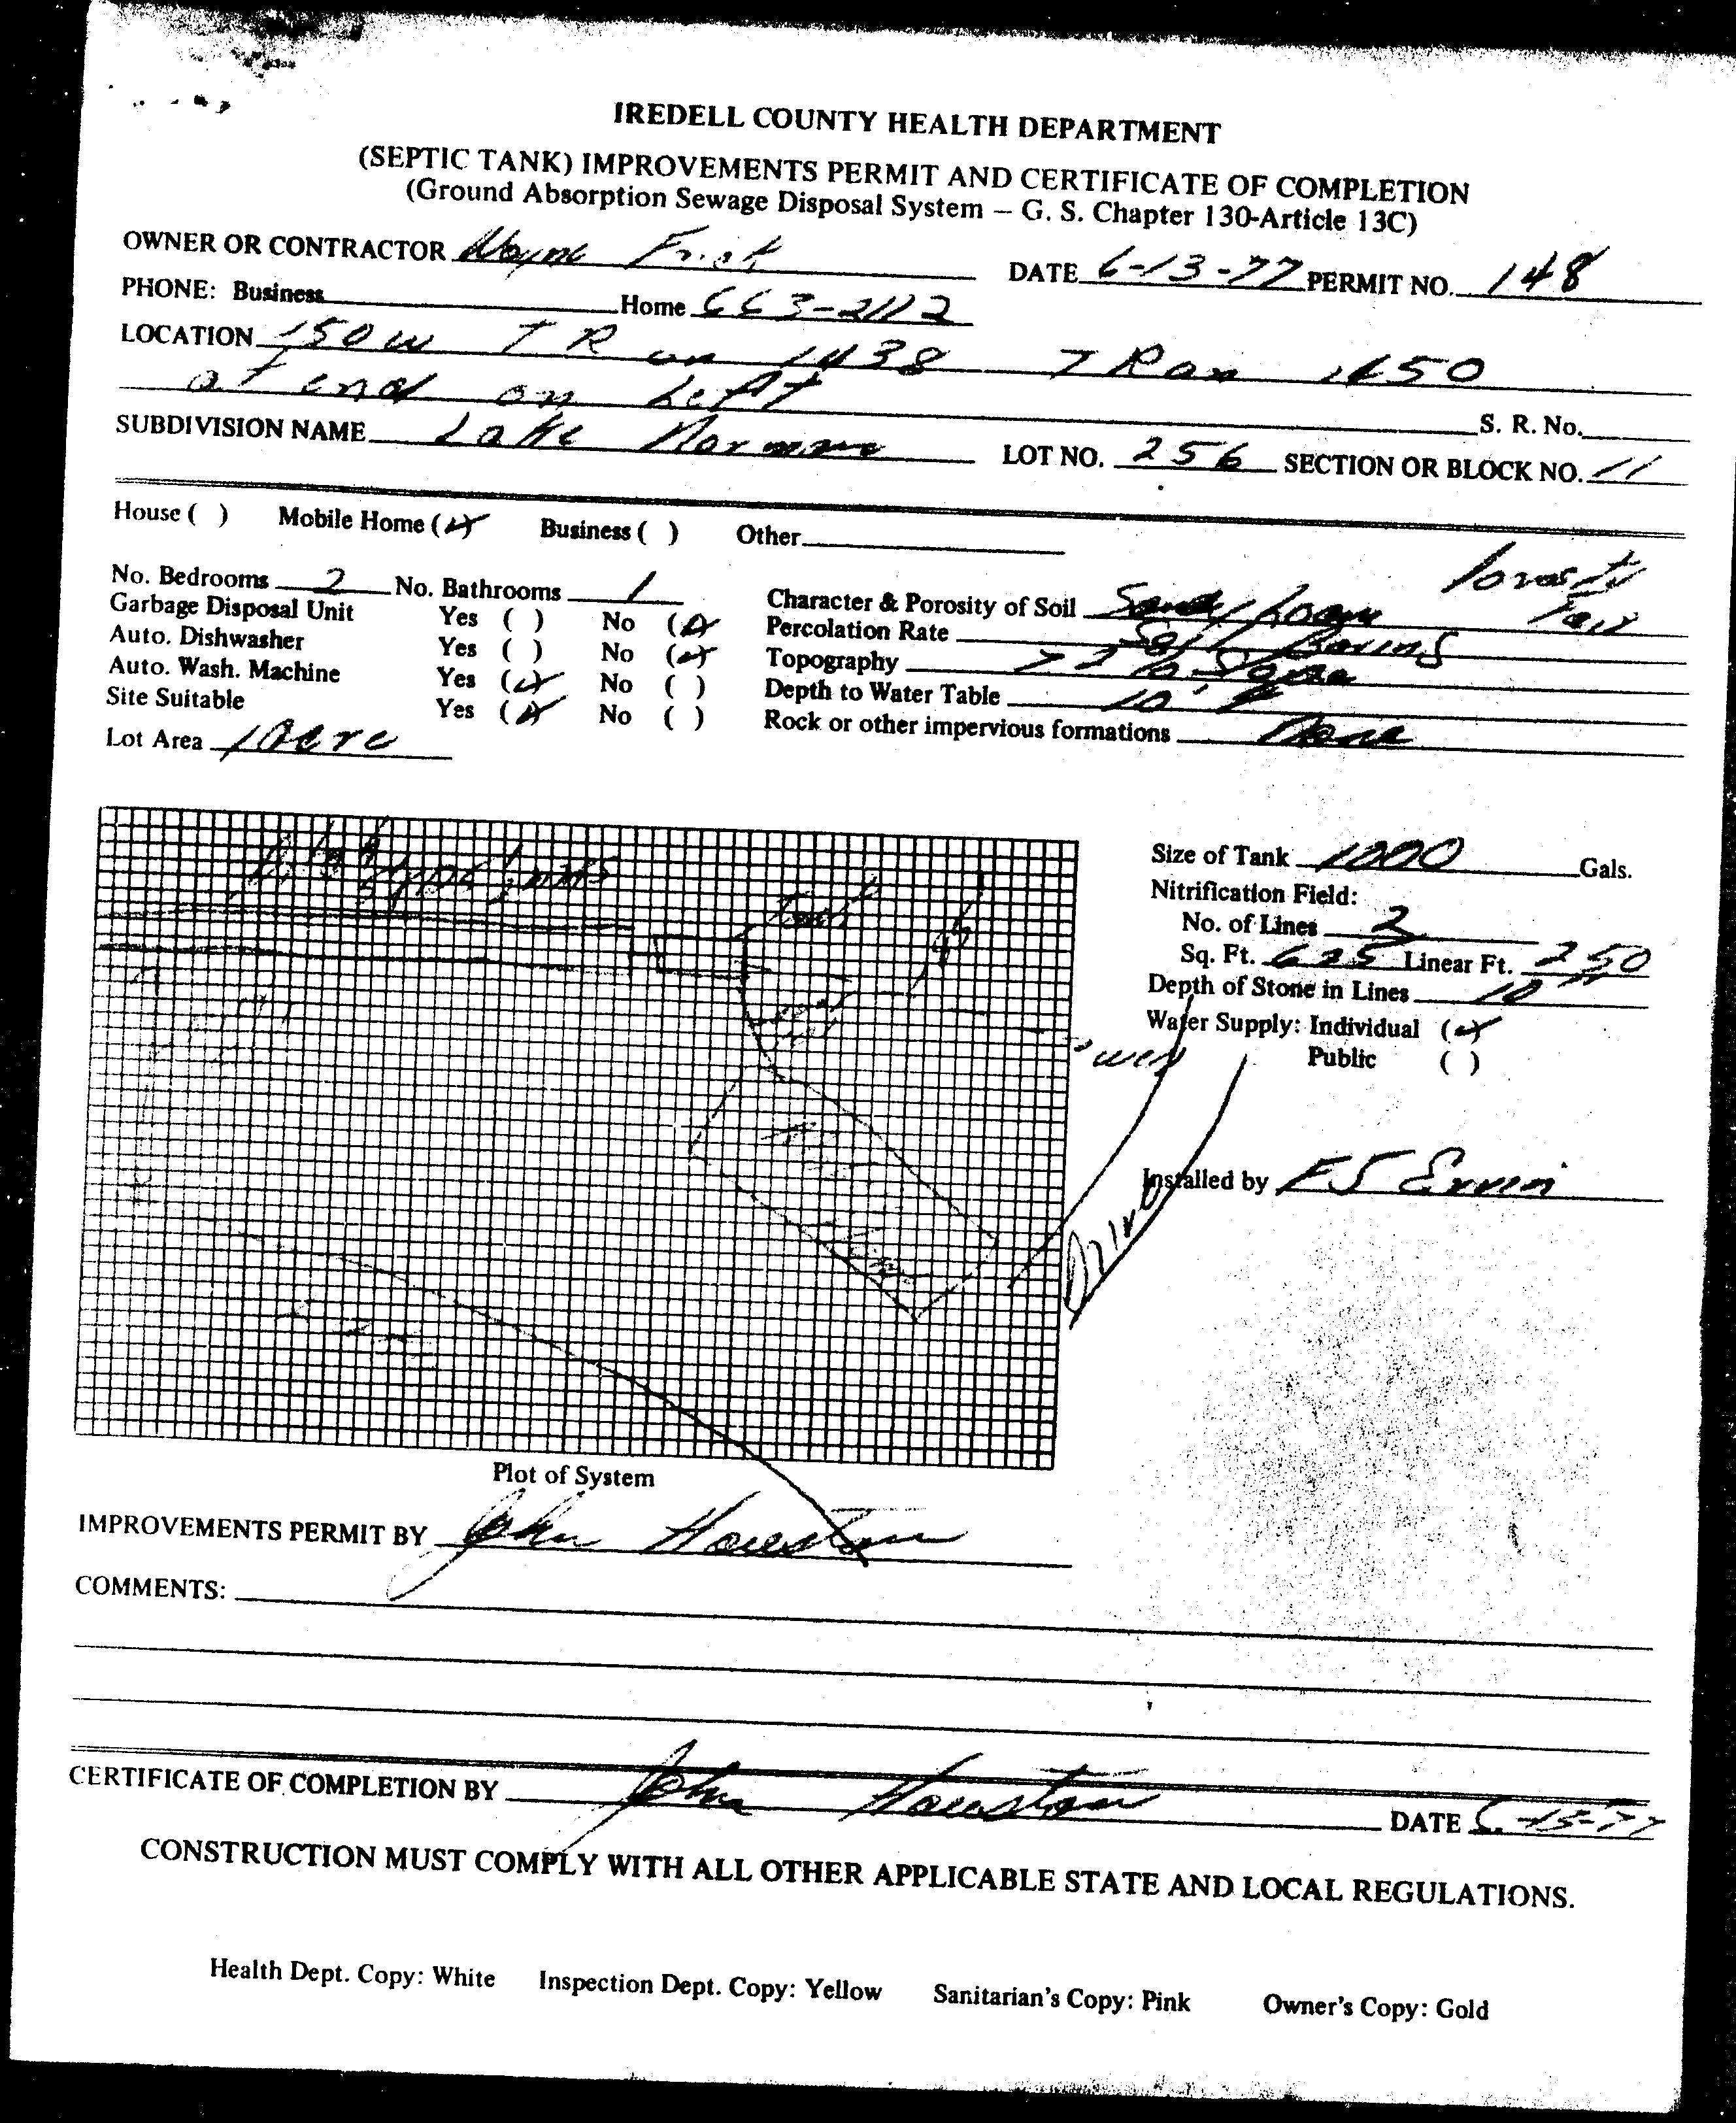 IREDELL COUNTY HEALTH DEPARTMENT
(SEPTIC TANK) IMPROVEMENTS PERMIT AND CERTIFICATE OF COMPLETION
(Ground Absorption Sewage Disposal System – G. S. Chapter 130-Article 13C)
OWNER OR CONTRACTOR Wayne DATE 6-13-77 PERMIT NO. 148
PHONE: Business Home 663-2112
LOCATION 150 W T R on 1438 T R on 1450
at end on Left S. R. No.
SUBDIVISION NAME Lake Norman LOT NO. 256 SECTION OR BLOCK NO. 11
House ( ) Mobile Home (✓) Business ( ) Other
No. Bedrooms 2 No. Bathrooms 1
Garbage Disposal Unit Yes ( ) No (✓)
Auto. Dishwasher Yes ( ) No (✓)
Auto. Wash. Machine Yes (✓) No ( )
Site Suitable Yes (✓) No ( )
Lot Area 1 Acre
Character & Porosity of Soil Sandy Loam
Percolation Rate Soil Boring
Topography
Depth to Water Table 10'
Rock or other impervious formations None
Size of Tank 1000 Gals.
Nitrification Field:
No. of Lines
Sq. Ft. 625 Linear Ft. 250
Depth of Stone in Lines 10"
Water Supply: Individual (✓)
Public ( )
well
Drive
Installed by F S Ervin
Plot of System
IMPROVEMENTS PERMIT BY John Houston
COMMENTS:
CERTIFICATE OF COMPLETION BY John Houston DATE 6-15-77
CONSTRUCTION MUST COMPLY WITH ALL OTHER APPLICABLE STATE AND LOCAL REGULATIONS.
Health Dept. Copy: White Inspection Dept. Copy: Yellow Sanitarian's Copy: Pink Owner's Copy: Gold